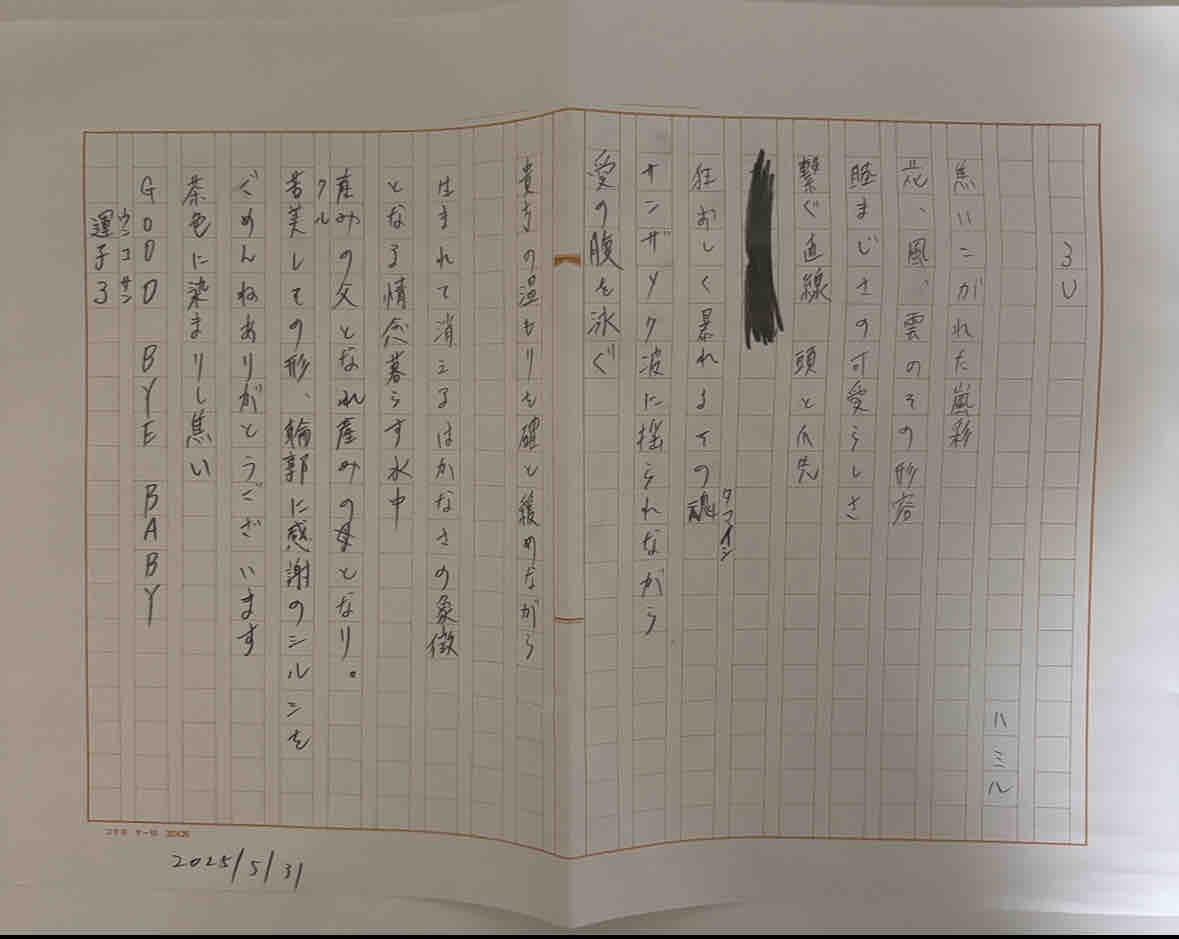 3U
ハミル
焦いこがれた嵐彩
花、風、雲のその形容
睦まじさの可愛らしさ
繋ぐ直線　頭と爪先
狂おしく暴れるその魂
タマイシ
サンザツク波に揺られながら
愛の腹を泳ぐ
貴方の温もりを確と緩めながら
生まれて消えるはかなさの象徴
となる情念暮らす水中
産みの父となれ産みの母となり。
クル
苦美しその形、輪郭に感謝のシルシを
ごめんねありがとうございます
茶色に染まりし焦い
GOOD BYE BABY
ウンコサン
運子3
コクヨ ケー10 20×20
2025/5/31